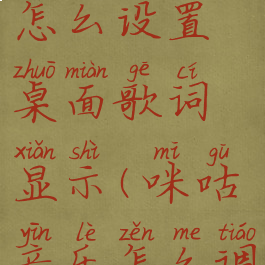 怎么设置
zhuō miàn gē cí
桌面歌词
xiǎn shì mī gū
显示(咪咕
yīn lè zěn me tiáo
音乐怎么调